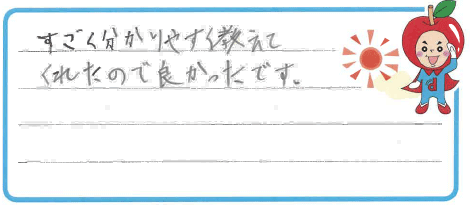 すごく分かりやすく教えて
くれたので良かったです。